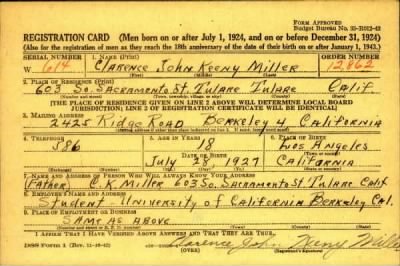 FORM APPROVED
Budget Bureau No. 33-R012-42
REGISTRATION CARD (Men born on or after July 1, 1924, and on or before December 31, 1924)
(Also for the registration of men as they reach the 18th anniversary of the date of their birth on or after January 1, 1943.)
SERIAL NUMBER 1. NAME (Print) ORDER NUMBER
W 614 CLARENCE JOHN KEENY MILLER 12862
(First) (Middle) (Last)
2. PLACE OF RESIDENCE (Print)
603 SO. SACRAMENTO ST. TULARE TULARE CALIF
[THE PLACE OF RESIDENCE GIVEN ON LINE 2 ABOVE WILL DETERMINE LOCAL BOARD
JURISDICTION; LINE 2 OF REGISTRATION CERTIFICATE WILL BE IDENTICAL]
3. MAILING ADDRESS
2425 RIDGE ROAD BERKELEY 4 CALIFORNIA
4. TELEPHONE 5. AGE IN YEARS 6. PLACE OF BIRTH
586 18 LOS ANGELES
DATE OF BIRTH
JULY 28, 1927 CALIFORNIA
7. NAME AND ADDRESS OF PERSON WHO WILL ALWAYS KNOW YOUR ADDRESS
(FATHER) C.K. MILLER 603 SO. SACRAMENTO ST. TULARE CALIF
8. EMPLOYER'S NAME AND ADDRESS
STUDENT - UNIVERSITY OF CALIFORNIA BERKELEY CAL.
9. PLACE OF EMPLOYMENT OR BUSINESS
SAME AS ABOVE
I AFFIRM THAT I HAVE VERIFIED ABOVE ANSWERS AND THAT THEY ARE TRUE.
DSS Form 1 (Rev. 11-16-42) (OVER) Clarence John Keeny Miller